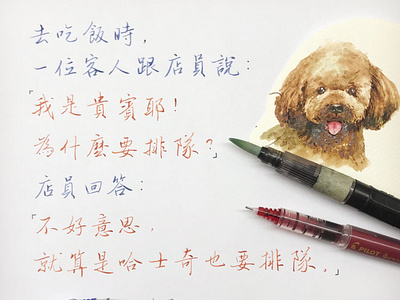 去吃飯時，
一位客人跟店員說：
「我是貴賓耶！
為什麼要排隊？」
店員回答：
「不好意思，
就算是哈士奇也要排隊。」
PILOT